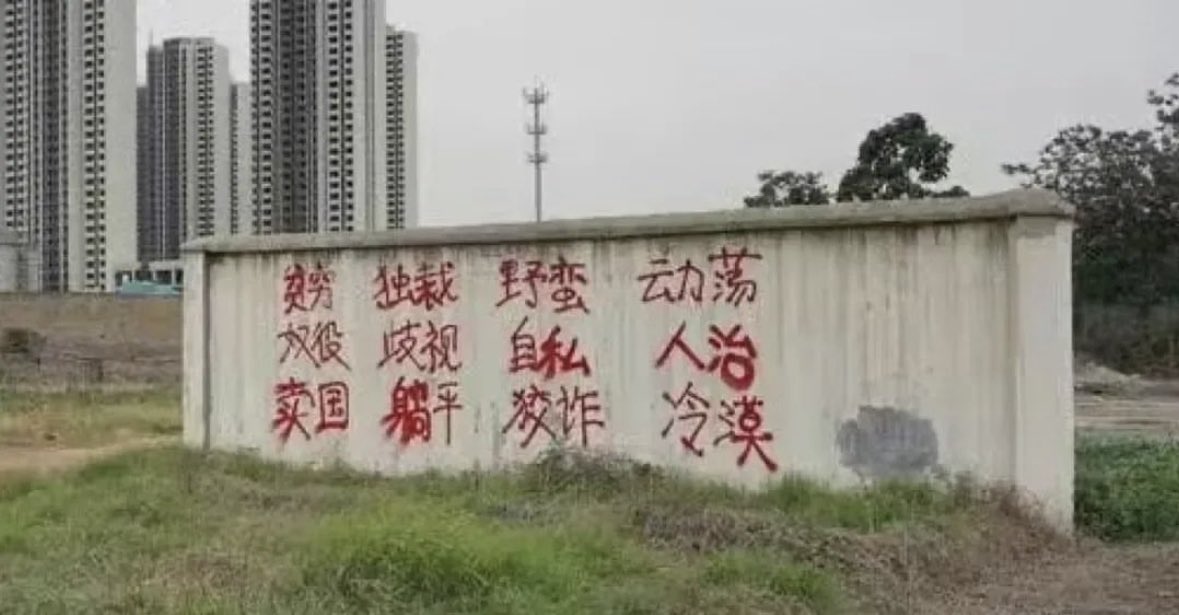 贫穷 独裁 野蛮 动荡
奴役 歧视 自私 人治
卖国 躺平 狡诈 冷漠